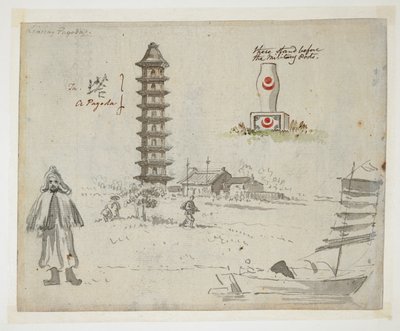 Pagoda.
Ta
塔
A Pagoda
These stand before
the Military Posts.